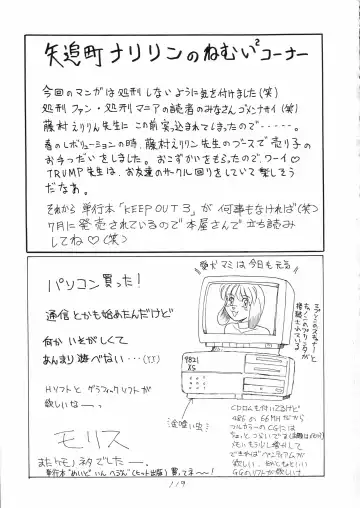 矢追町ナリリンのねむい²コーナー
今回のマンガは処刑しないように気を付けました(笑)
処刑ファン・処刑マニアの読者のみなさんゴメンナサイ(笑)
藤村えりりん先生にこの前突っ込まれてしまったので-----。
春のレボリューションの時、藤村えりリン先生のブースで売り子の
お手つだいをしました。おこずかいをもらったので、ワーイ♡
TRUMP先生は、お友達のサークル回りをしていて楽しそう
だなぁ。
それから 単行本「KEEP OUT 3」が何事もなければ(笑)
7月に発売されているので本屋さんで立ち読み
してね♡(笑)
パソコン買った!
通信とかも始めたんだけど
何か いそがしくて
あんまり遊べない…(T.T)
Hソフトと グラフィックソフトが
欲しいなー、
モリス
またケモノネタでしたー。
単行本"めいどいんへぶん"(ヒット出版)買ってネ〜!
愛犬マミは今日も元る
エプソンのスキャナーと
接続されている
9821
XS
(金喰い虫)
CDロムも付いてるけど
486の66MHだから
フルカラーのCGには
ちょっとつらいです
メモリもう少し増して
できればペンティアムが
欲しい。
GGのソフトが欲しいナ。
119